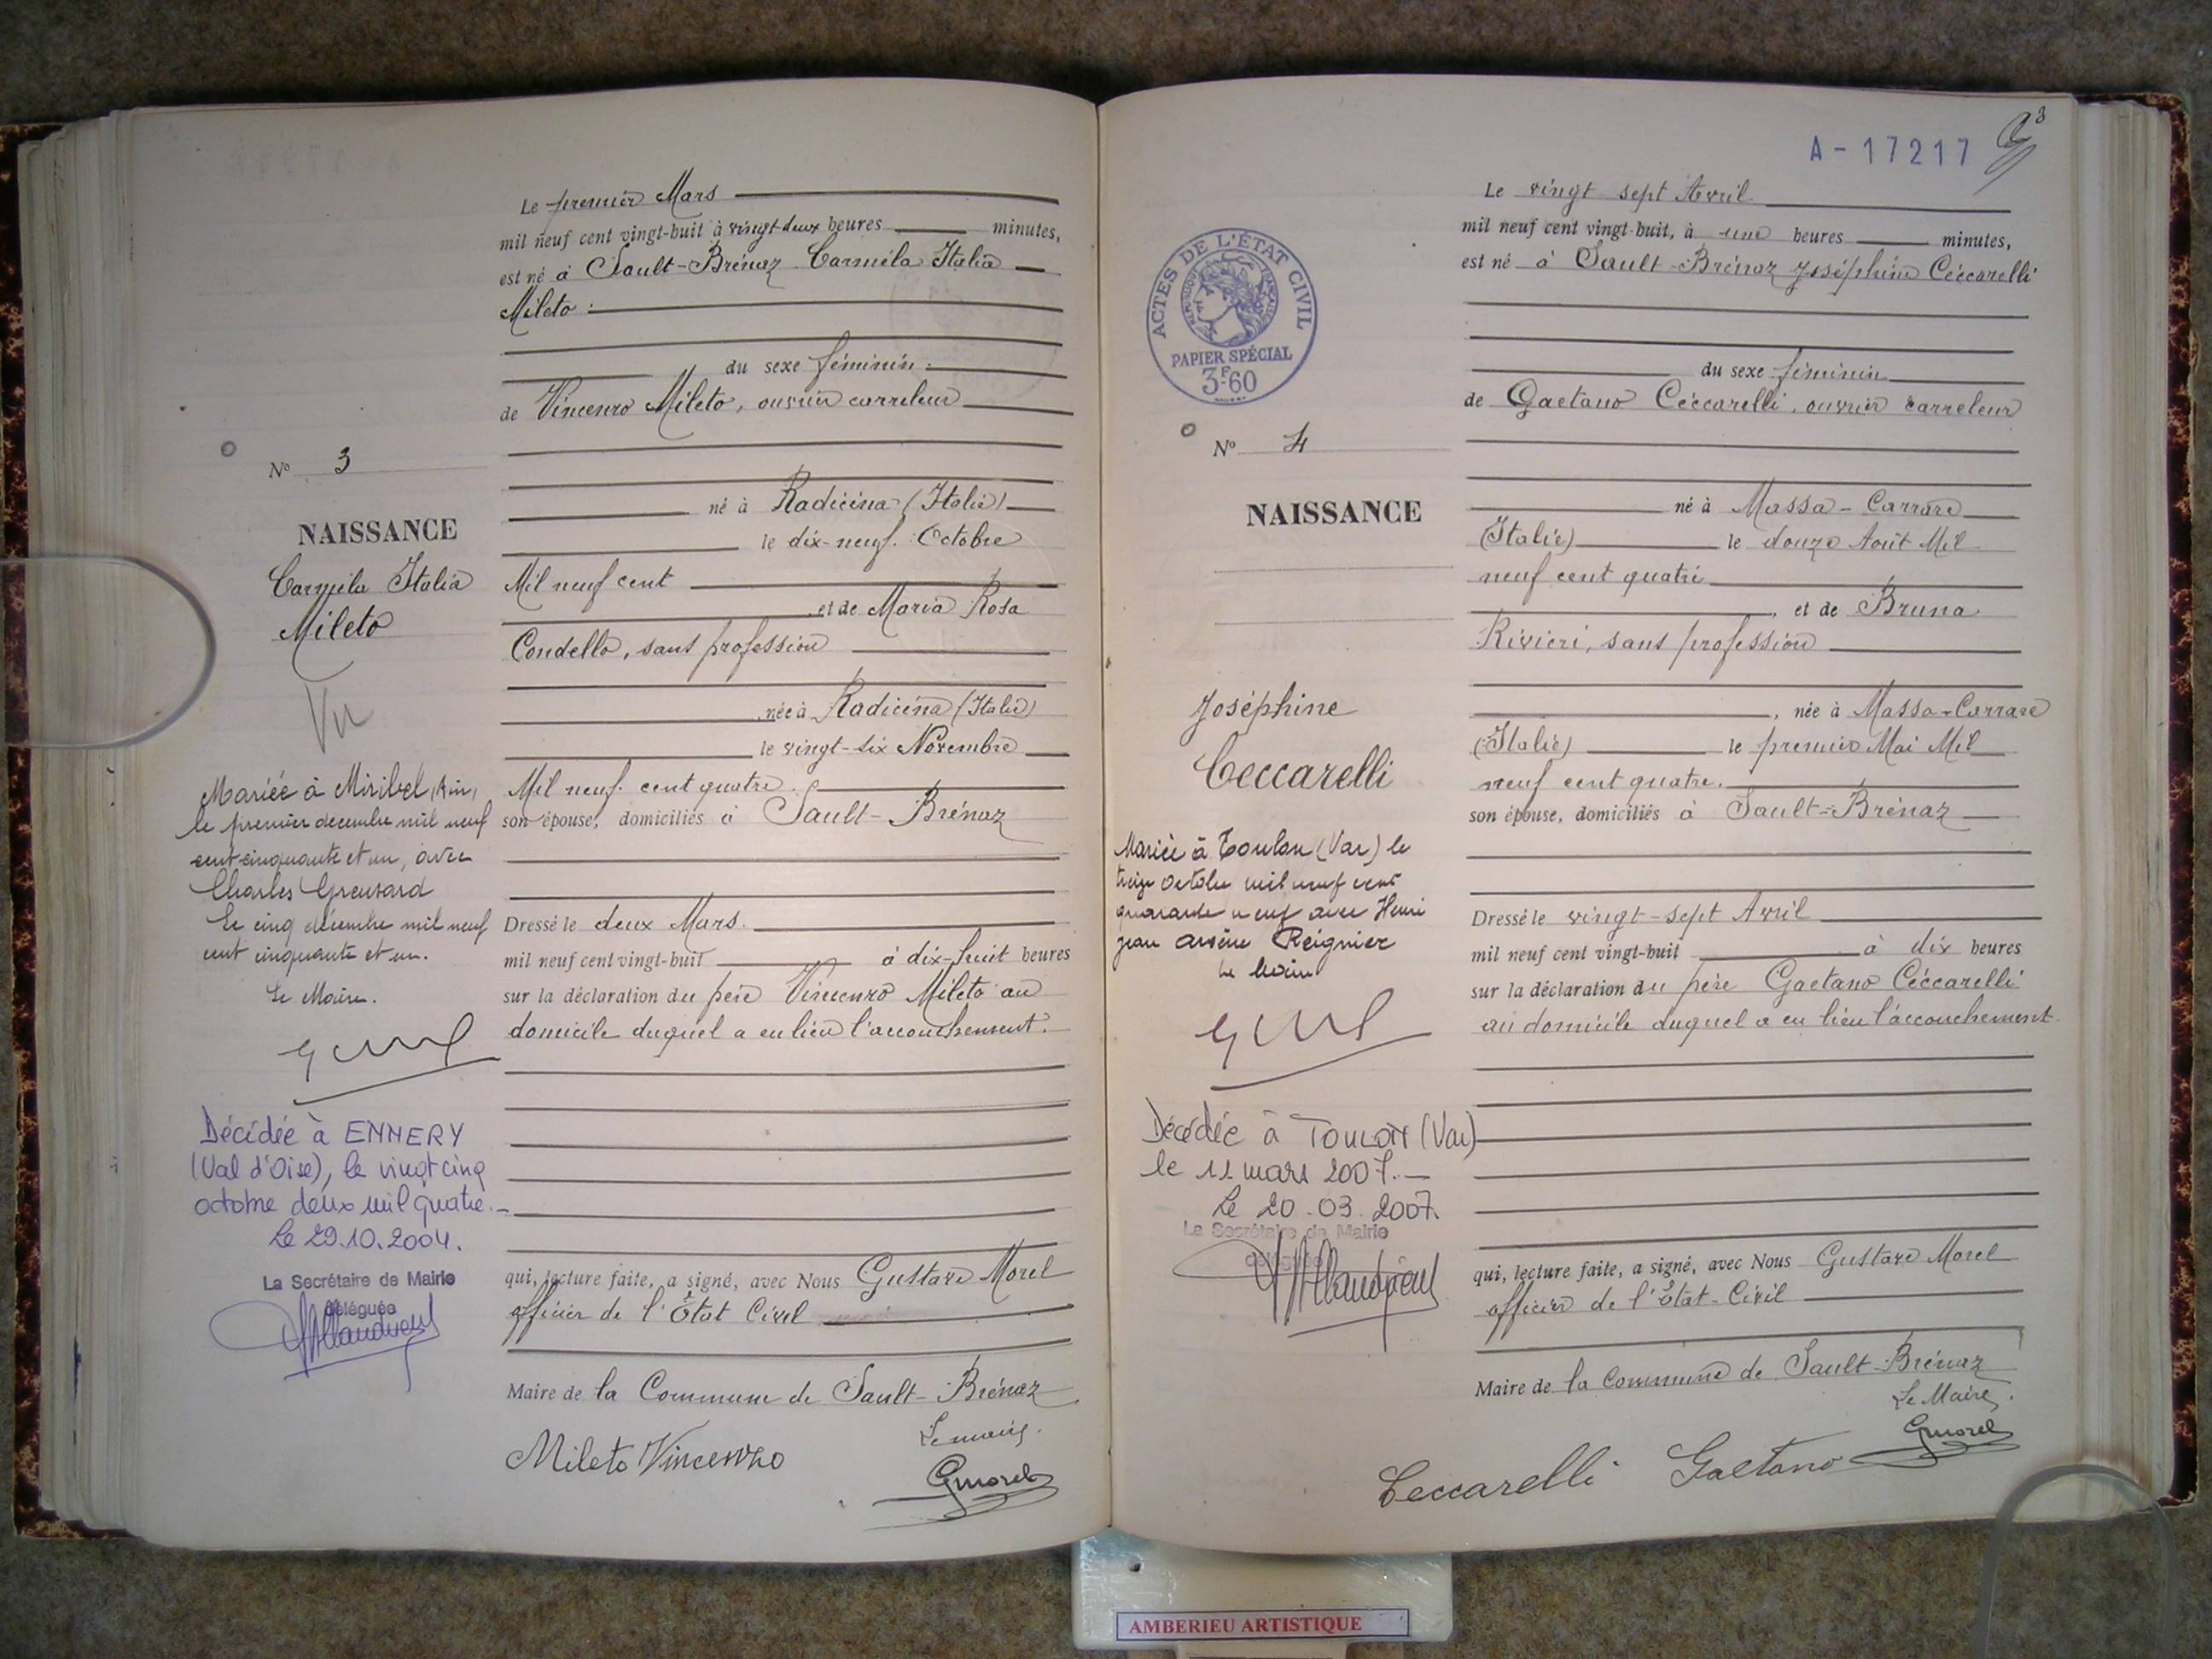 Le premier Mars
mil neuf cent vingt-huit à vingt-deux heures minutes,
est né à Sault-Brénaz Carméla Italia
Mileto
du sexe féminin
de Vincenzo Mileto, ouvrier carreleur
né à Radicena (Italie)
le dix-neuf Octobre
Mil neuf cent
et de Maria Rosa
Condello, sans profession
née à Radicena (Italie)
le vingt-six Novembre
Mil neuf cent quatre
son épouse, domiciliés à Sault-Brénaz
Dressé le deux Mars.
mil neuf cent vingt-huit à dix-huit heures
sur la déclaration du père Vincenzo Mileto au
domicile duquel a eu lieu l'accouchement.
qui, lecture faite, a signé, avec Nous Gustave Morel
officier de l'État Civil
Maire de la Commune de Sault-Brénaz
Le maire.
Mileto Vincenzo
GMorel
N° 3
NAISSANCE
Carmela Italia
Mileto
Vu
Mariée à Miribel, Ain,
le premier décembre mil neuf
cent cinquante et un, avec
Charles
Le cinq décembre mil neuf
cent cinquante et un.
Le Maire.
Décédée à ENNERY
(Val d'Oise), le vingt cinq
octobre deux mil quatre.
Le 29.10.2004.
La Secrétaire de Mairie
déléguée
A - 17217
3
Le vingt sept Avril
mil neuf cent vingt-huit, à une heures minutes,
est né à Sault-Brénaz Joséphine Céccarelli
du sexe féminin
de Gaetano Céccarelli, ouvrier carreleur
né à Massa-Carrare
(Italie) le douze Août Mil
neuf cent quatre
, et de Bruna
Rivieri, sans profession
, née à Massa-Carrare
(Italie) le premier Mai Mil
neuf cent quatre.
son épouse, domiciliés à Sault-Brénaz
Dressé le vingt-sept Avril
mil neuf cent vingt-huit à dix heures
sur la déclaration du père Gaetano Céccarelli
au domicile duquel a eu lieu l'accouchement.
qui, lecture faite, a signé, avec Nous Gustave Morel
officier de l'État-Civil
Maire de la Commune de Sault-Brénaz
Le Maire.
GMorel
Ceccarelli Gaetano
ACTES DE L'ÉTAT CIVIL
RÉPUBLIQUE FRANÇAISE
PAPIER SPÉCIAL
3F60
N° 4
NAISSANCE
Joséphine
Ceccarelli
Mariée à Toulon (Var) le
treize octobre mil neuf cent
quarante neuf avec Henri
Jean Arsène Reignier
Le Maire
Décédée à TOULON (Var)
le 11 mars 2007.
Le 20.03.2007.
La Secrétaire de Mairie
déléguée
AMBERIEU ARTISTIQUE